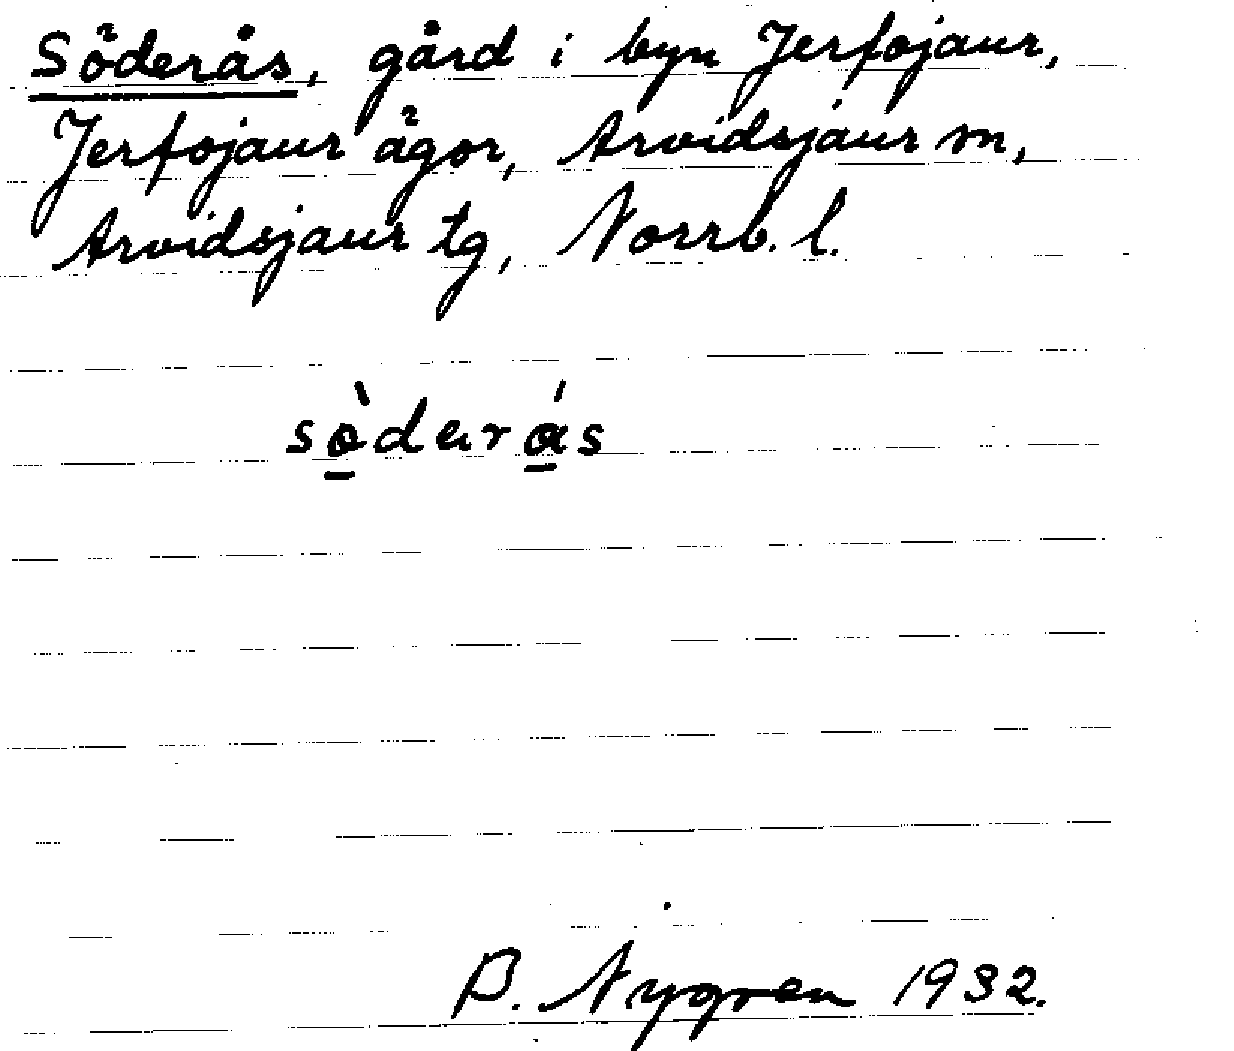 Söderås, gård i byn Jerfojaur,
Jerfojaur ägor, Arvidsjaur sn,
Arvidsjaur tg, Norrb. l.
sò̱derá̱s
B. Nygren 1932.